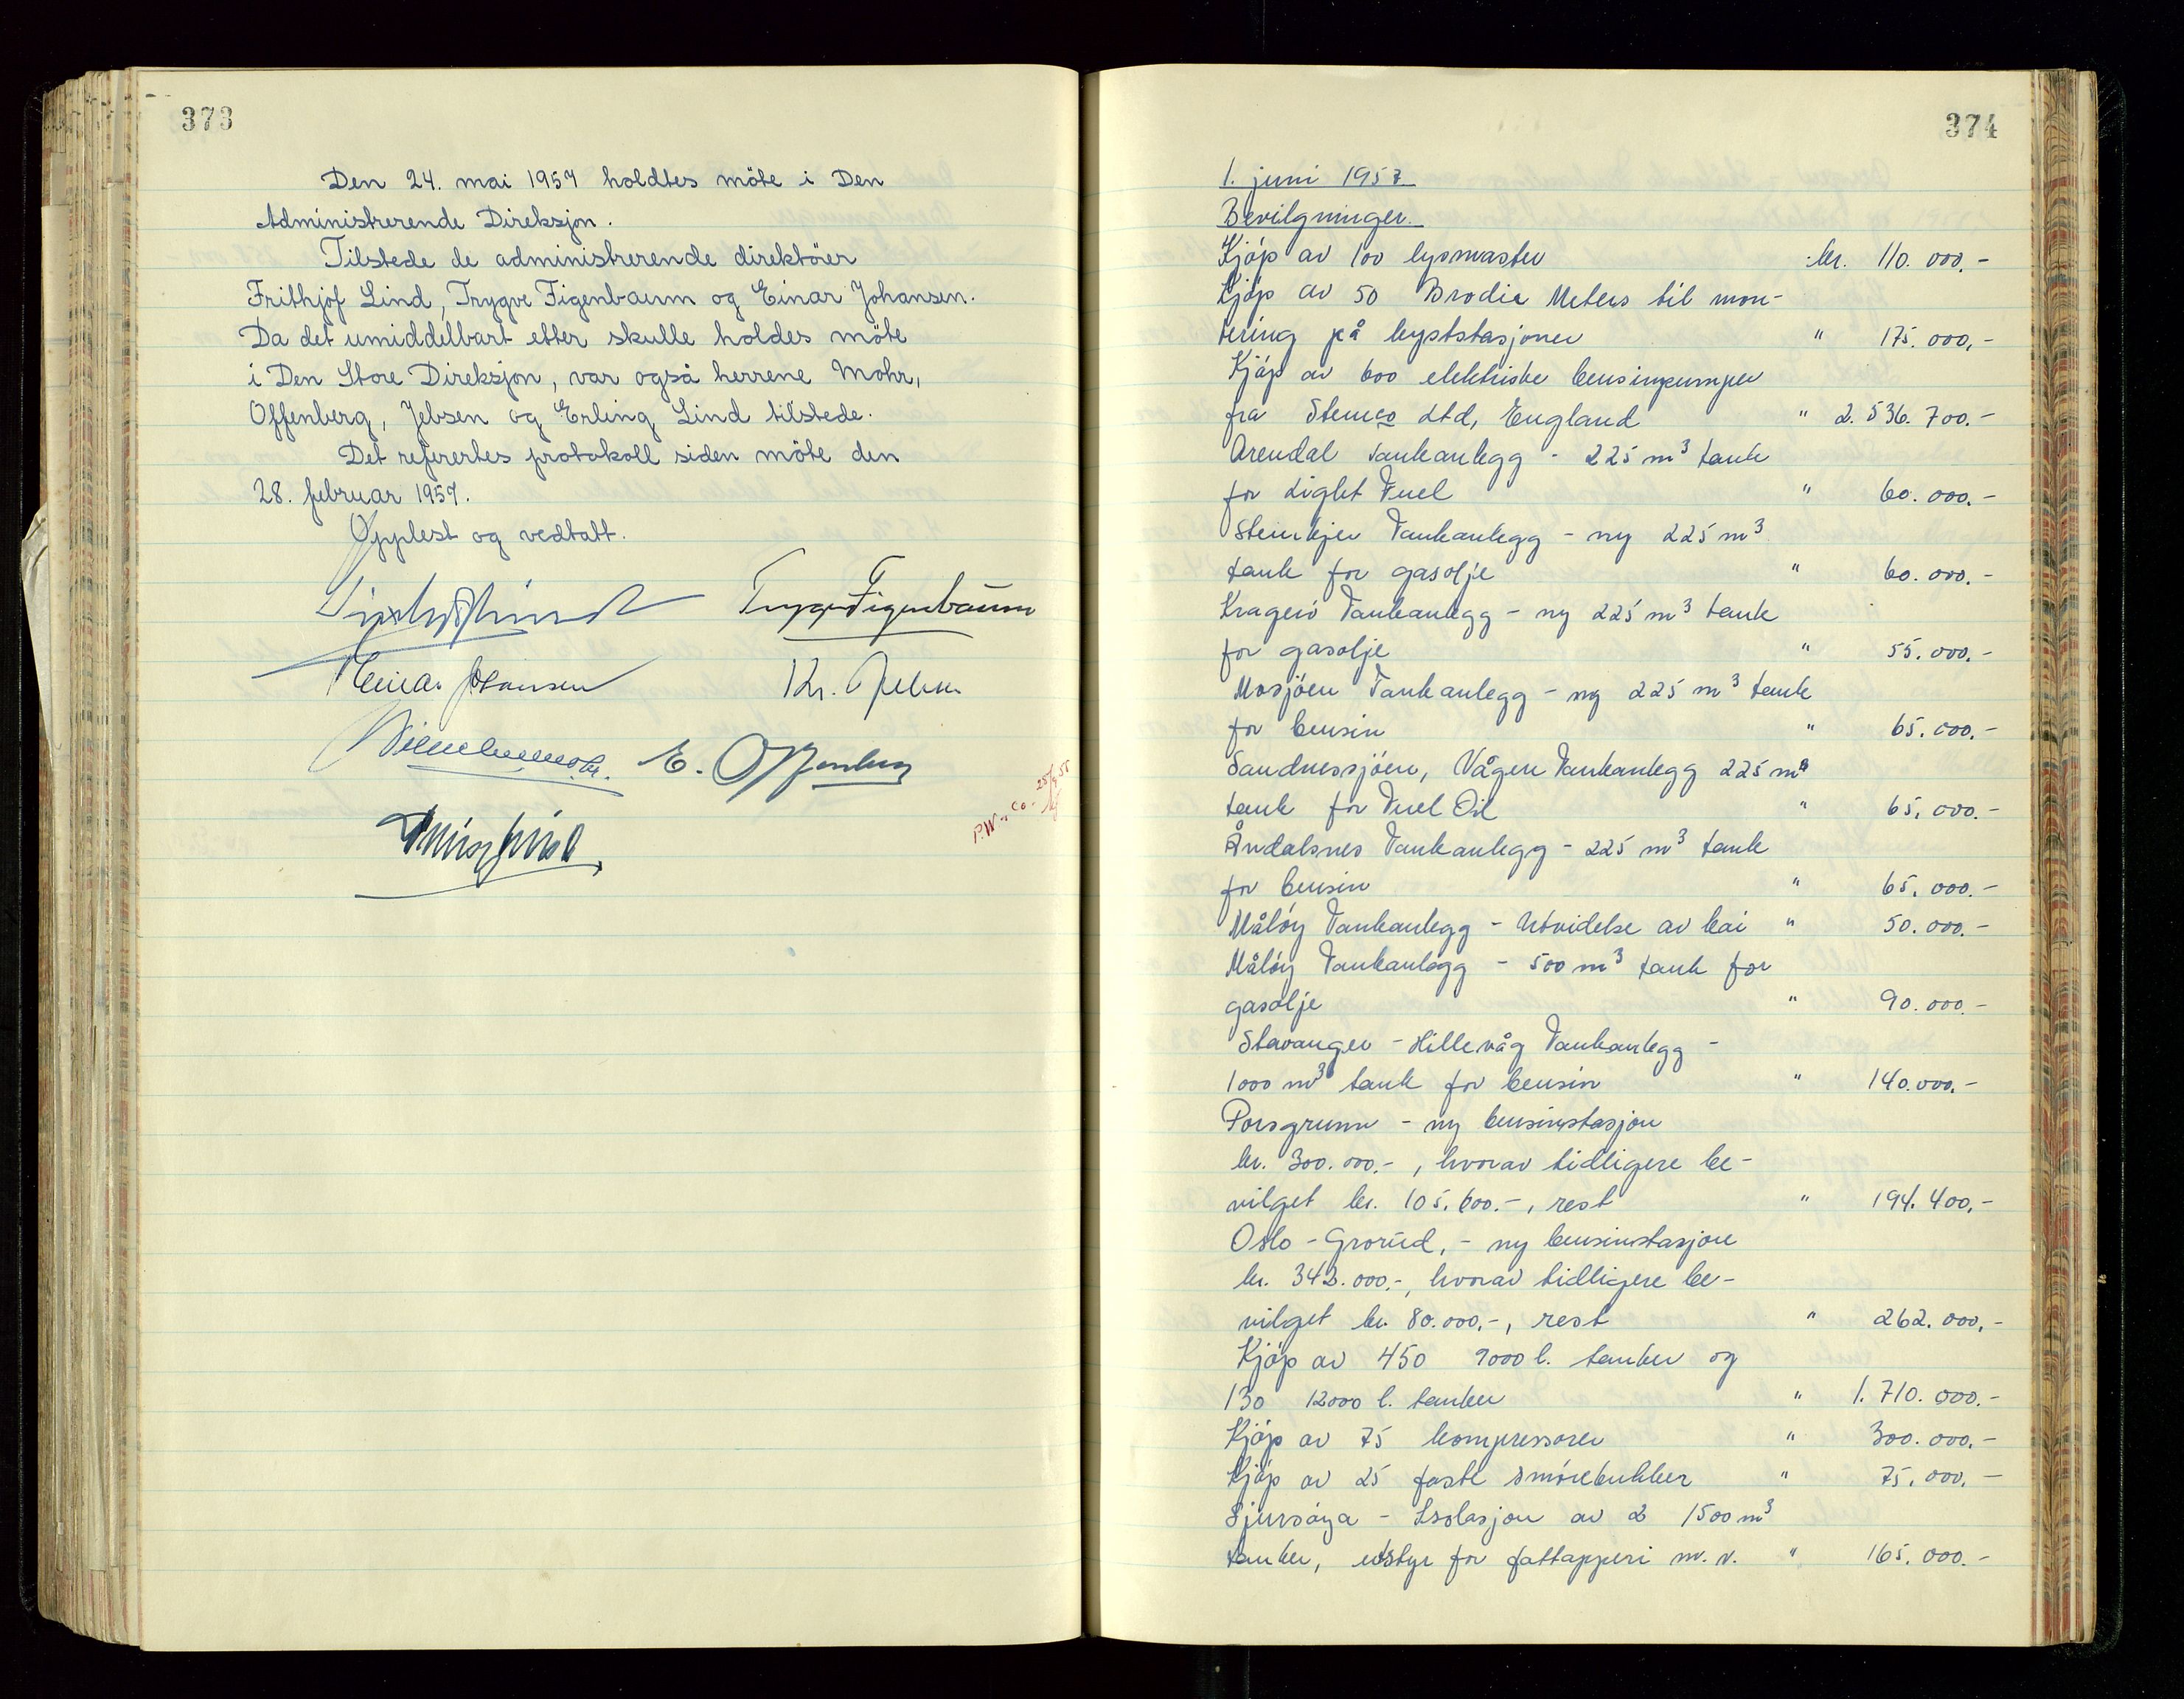 373
Den 24. mai 1957 holdtes möte i Den
Administrerende Direksjon.
Tilstede de administrerende direktöer
Frithjof Lind, Trygve Figenbaum og Einar Johansen.
Da det umiddelbart etter skulle holdes möte
i Den Store Direksjon, var også herrene Mohr,
Offenberg, Jebsen og Erling Lind tilstede.
Det referertes protokoll siden möte den
28. februar 1957.
Opplest og vedtatt.
Trygve Figenbaum
Einar Johansen Kr. Jebsen
E. Offenberg
P.W. & Co.
374
1. juni 1957
Bevilgninger.
Kjöp av 100 lysmaster kr. 110.000,-
Kjöp av 50 Brodie Meters til mon-
tering på kyststasjoner " 175.000,-
Kjöp av 600 elektriske bensinpumper
fra Stemco Ltd, England " 2.536.700.-
Arendal Tankanlegg - 225 m³ tank
for Light Fuel " 60.000.-
Steinkjer Tankanlegg - ny 225 m³
tank for gasolje " 60.000.-
Kragerö Tankanlegg - ny 225 m³ tank
for gasolje " 55.000.-
Mosjöen Tankanlegg - ny 225 m³ tank
for bensin " 65.000.-
Sandnessjöen, Vågen Tankanlegg 225 m³
tank for Fuel Oil " 65.000.-
Åndalsnes Tankanlegg - 225 m³ tank
for bensin " 65.000.-
Målöy Tankanlegg - Utvidelse av kai " 50.000.-
Målöy Tankanlegg - 500 m³ tank for
gasolje " 90.000.-
Stavanger - Hillevåg Tankanlegg -
1000 m³ tank for bensin " 140.000.-
Porsgrunn - ny bensinstasjon
kr. 300.000.-, hvorav tidligere be-
vilget kr. 105.600.-, rest " 194.400,-
Oslo - Grorud, - ny bensinstasjon
kr. 342.000.-, hvorav tidligere be-
vilget kr. 80.000,-, rest " 262.000,-
Kjöp av 450 7000 l. tanker og
130 12000 l. tanker " 1.710.000.-
Kjöp av 75 kompressorer " 300.000.-
Kjöp av 25 faste smörebukker " 75.000.-
Sjursöya - Isolasjon av 2 1500 m³
tanker, utstyr for fattapperi m.v. " 165.000.-